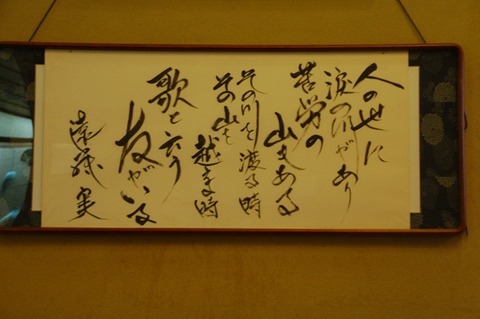 人の世に
涙の川があり
苦労の
山もある
その川を渡る時
その山を越す時
歌と云う
友がいる
遠藤実